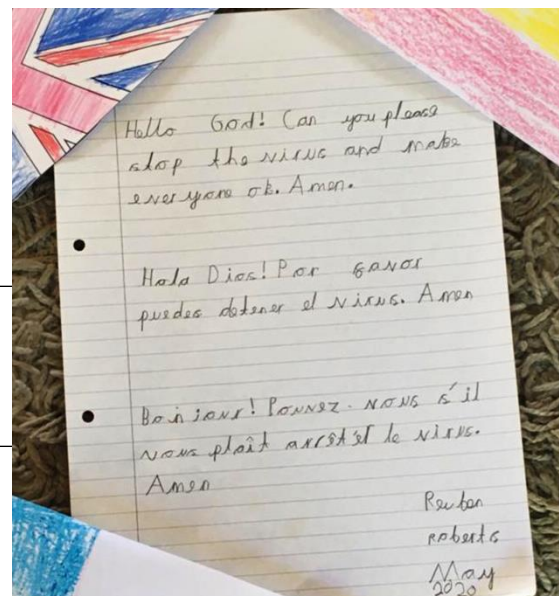 Hello God! Can you please
stop the virus and make
everyone ok. Amen.
Hola Dios! Por favor
puedes detener el virus. Amen
Bonjour! Pouvez-vous s'il
vous plaît arrêt'et le virus.
Amen
Reuben
roberts
May
2020